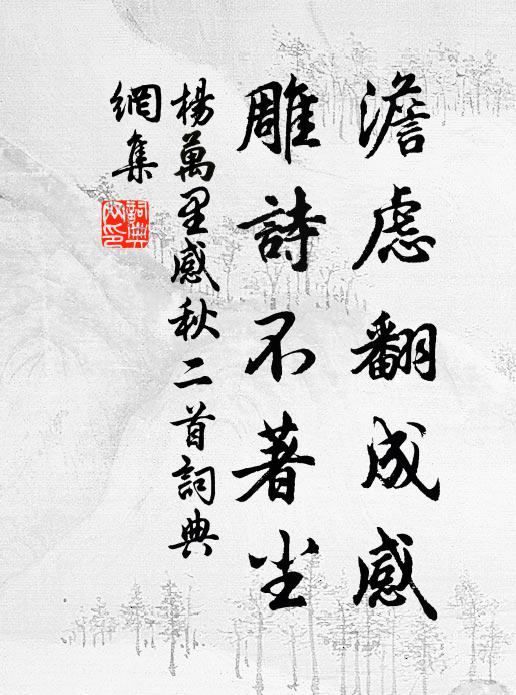 澹慮翻成感
雕詩不著尘
楊萬里感秋二首詞典
網集